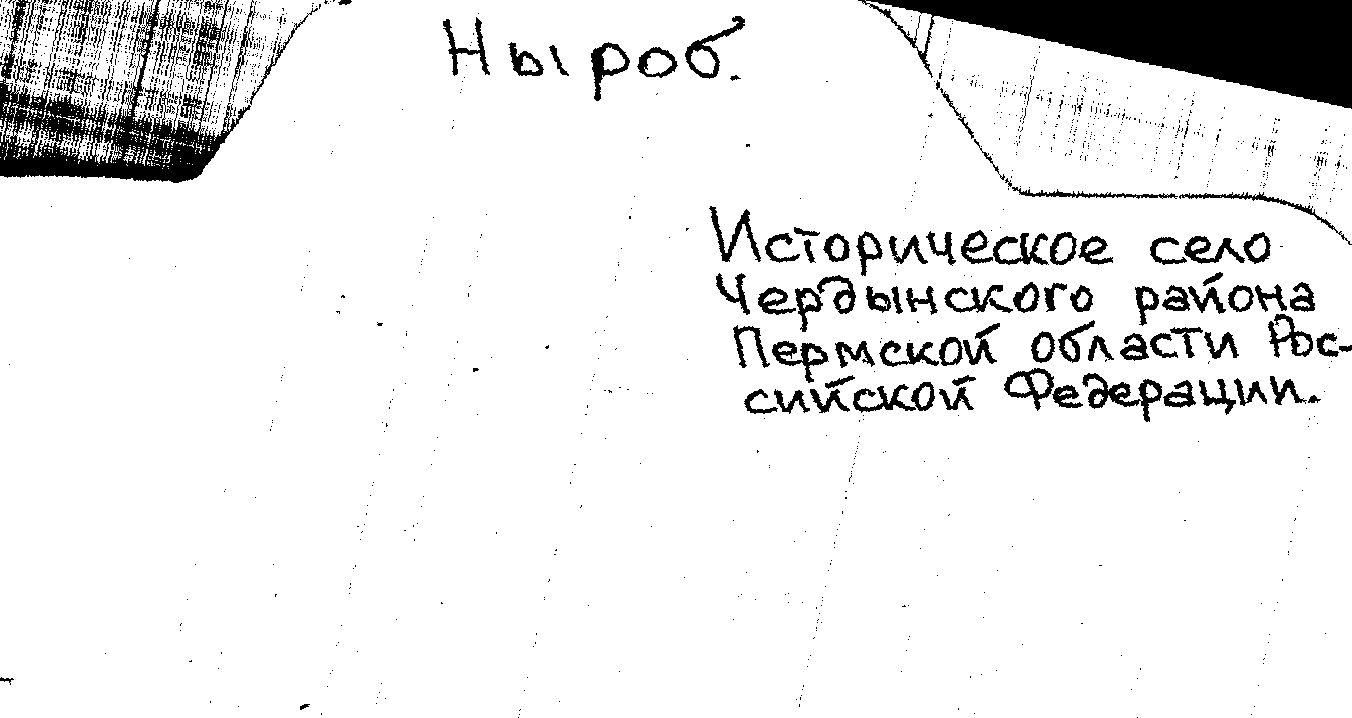 Ныроб.
Историческое село
Чердынского района
Пермской области Рос-
сийской Федерации.